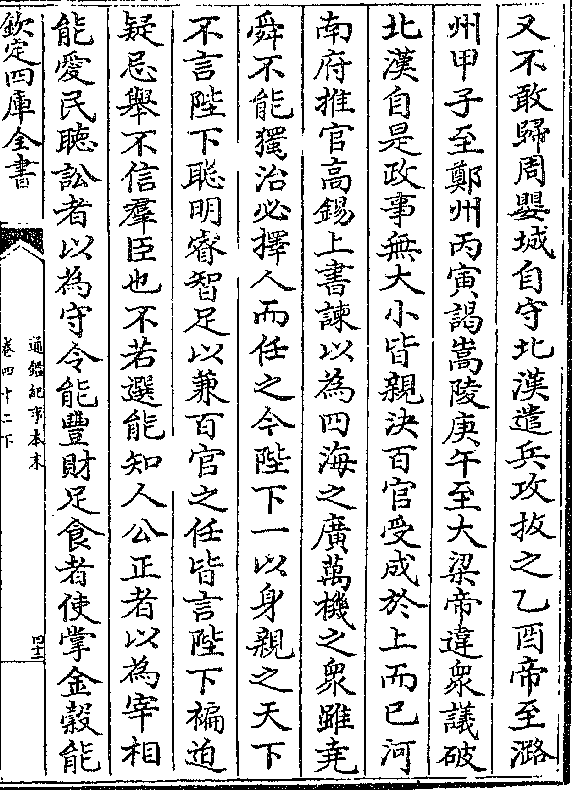 又不敢歸周嬰城自守北漢遣兵攻拔之乙酉帝至潞
州甲子至鄭州丙寅謁嵩陵庚午至大梁帝違衆議破
北漢自是政事無大小皆親決百官受成於上而已河
南府推官高錫上書諫以為四海之廣萬機之衆雖堯
舜不能獨治必擇人而任之今陛下一以身親之天下
不言陛下聡明睿智足以兼百官之任皆言陛下褊迫
疑忌舉不信羣臣也不若選能知人公正者以為宰相
能愛民聽訟者以為守令能豐財足食者使掌金穀能
欽定四庫全書
通鑑紀事本末
卷四十二下